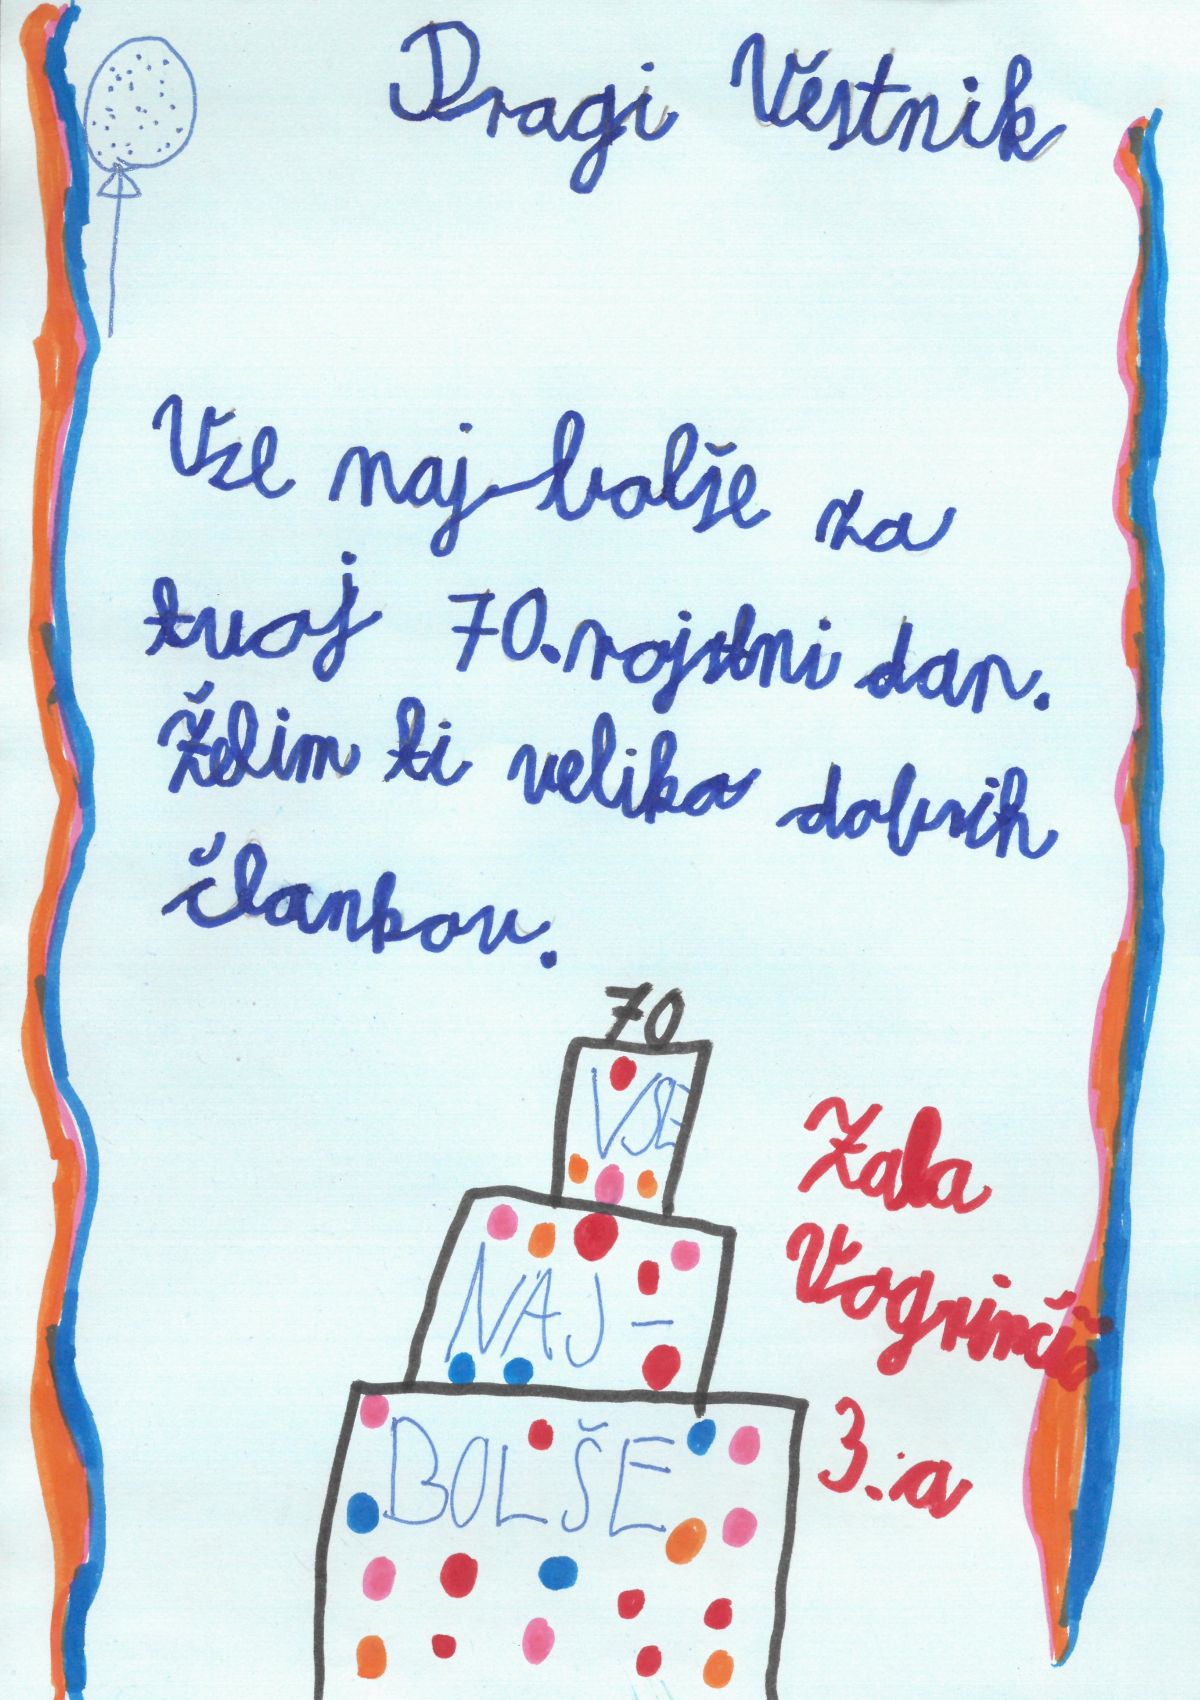 Dragi Vestnik
Vse naj-bolše za
tvoj 70. rojstni dan.
Želim ti veliko dobrih
člankov.
70
VSE
NAJ-
BOLŠE
Zala
Vogrinčič
3.a